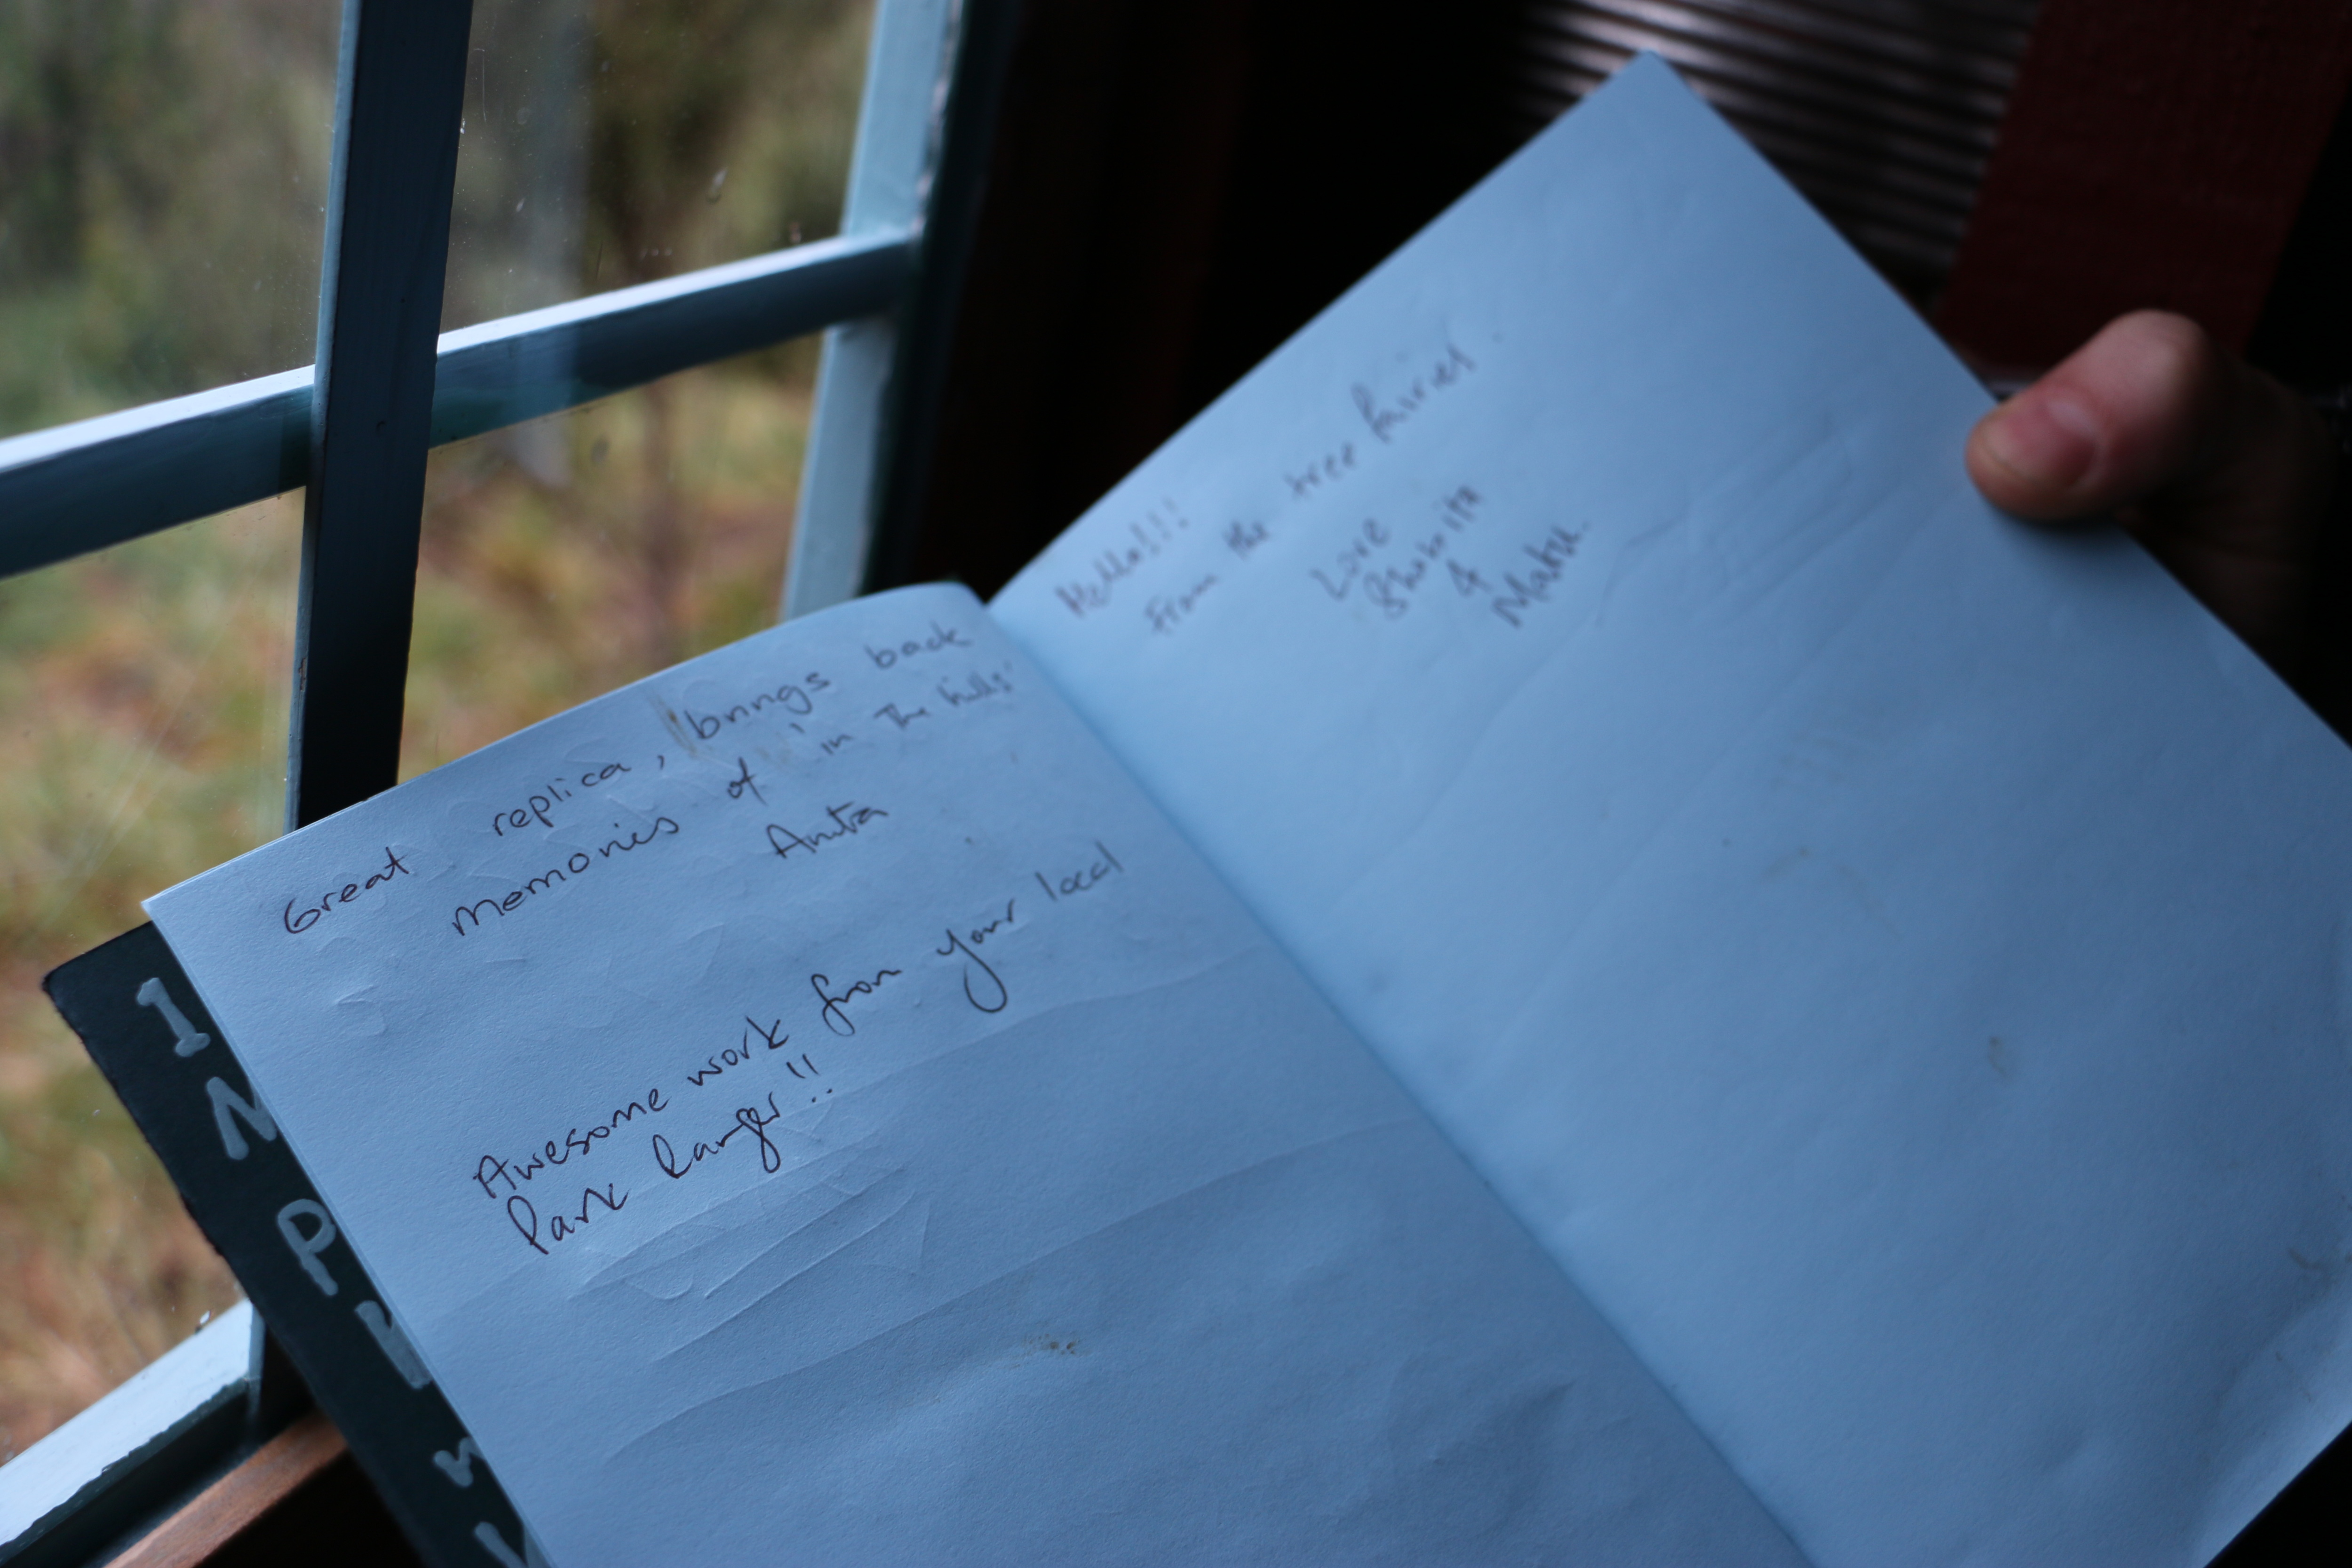 Great replica, brings back
memories of 'in the hills'
Anita
Awesome work from your local
Park Ranger!!
Hello!!!
From the tree fairies.
Love
&
I
N